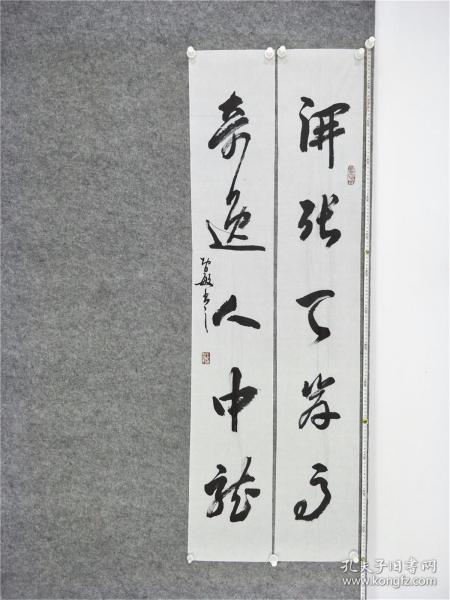 开张天岸马
奇逸人中龙
孔夫子旧书网
www.kongfz.com